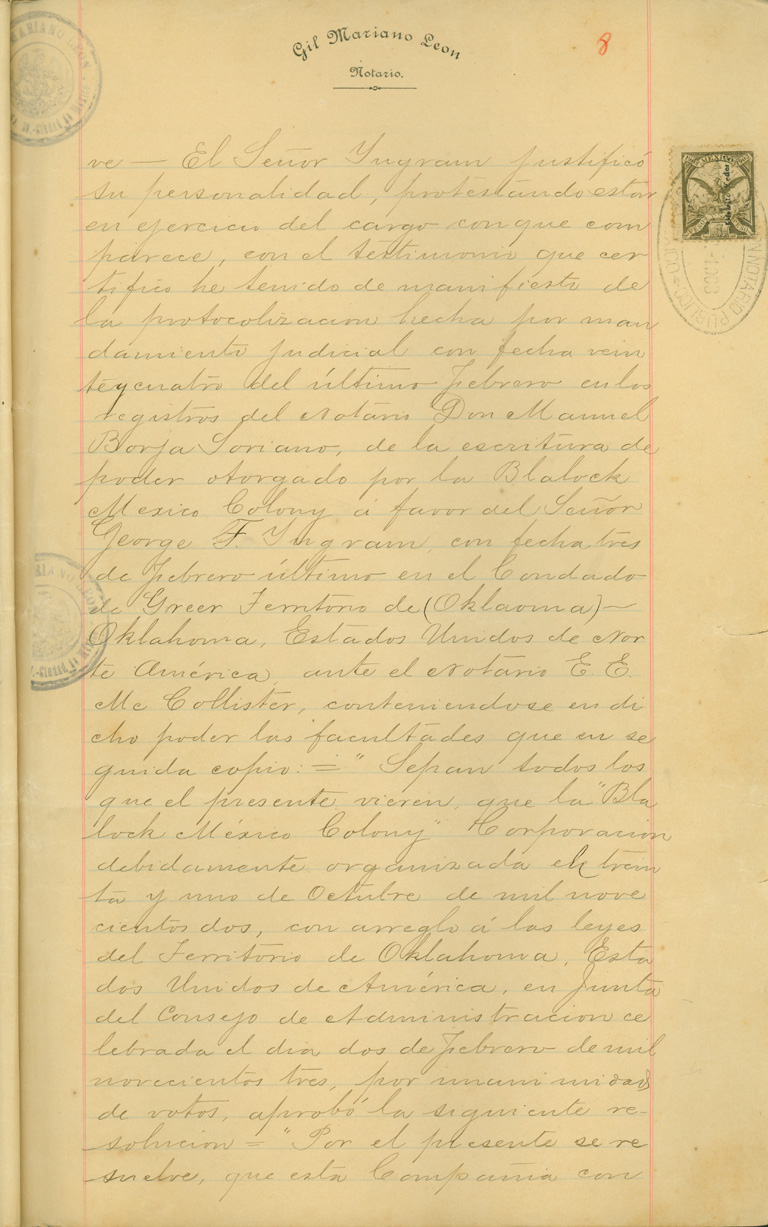 Gil Mariano Leon
Notario.
8
ve — El Señor Yngram justificó
su personalidad, protestando estar
en ejercicio del cargo con que com
parece, con el testimonio que cer
tifico he tenido de manifiesto de
la protocolizacion hecha por man
damiento judicial con fecha vein
teycuatro del último Febrero en los
registros del Notario Don Manuel
Borja Soriano, de la escritura de
poder otorgado por la Blalock
Mexico Colony á favor del Señor
George F. Yngram, con fecha tres
de Febrero último en el Condado
de Greer Territorio de (Oklaoma) —
Oklahoma, Estados Unidos de Nor
te América, ante el Notario E. E.
Mc Collister, conteniendose en di
cho poder las facultades que en se
guida copio: = "Sepan todos los
que el presente vieren, que la "Bla
lock México Colony" Corporacion
debidamente organizada en trein
ta y uno de Octubre de mil nove
cientos dos, con arreglo á las leyes
del Territorio de Oklahoma, Esta
dos Unidos de América, en Junta
del Consejo de Administracion ce
lebrada el dia dos de Febrero de mil
novecientos tres, por unanimidad
de votos, aprobó la siguiente re-
solucion = "Por el presente se re
suelve, que esta Compañia con
MEXICO
NOTARIO PUBLICO